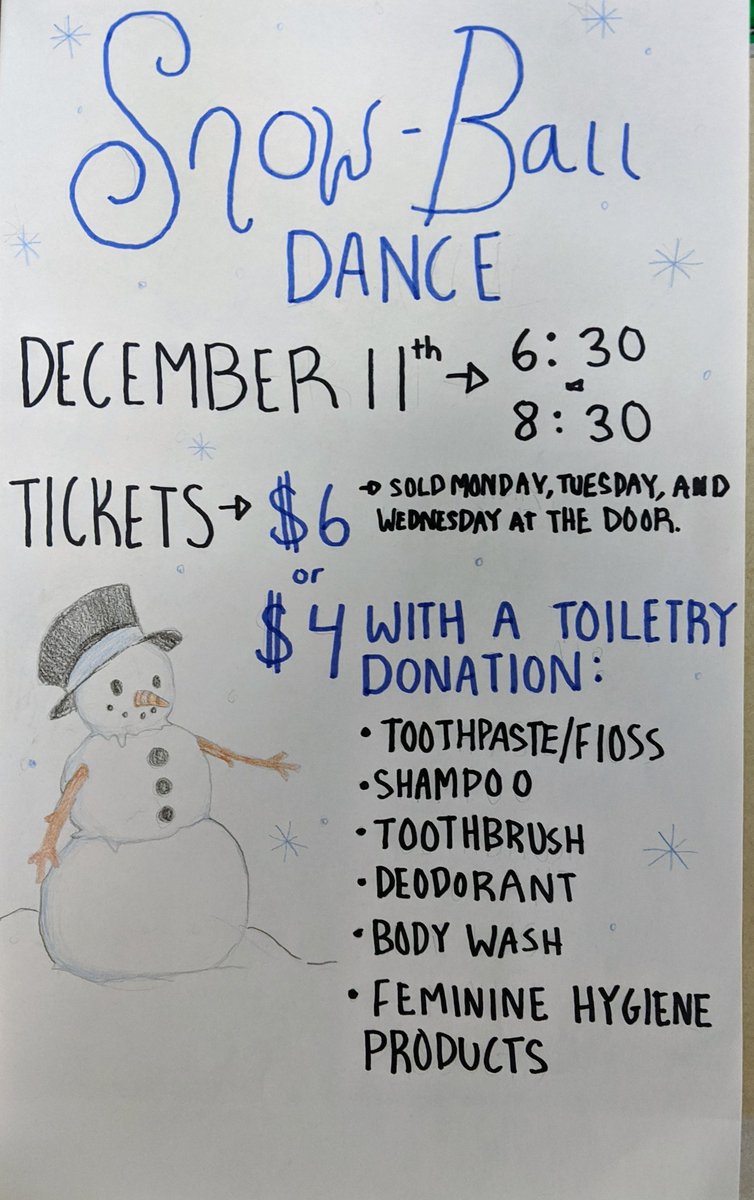 Snow-Ball
DANCE
DECEMBER 11th → 6:30
-
8:30
TICKETS → $6 → SOLD MONDAY, TUESDAY, AND
WEDNESDAY AT THE DOOR.
or
$4 WITH A TOILETRY
DONATION:
• TOOTHPASTE/FlOSS
• SHAMPOO
• TOOTHBRUSH
• DEODORANT
• BODY WASH
• FEMININE HYGIENE
PRODUCTS